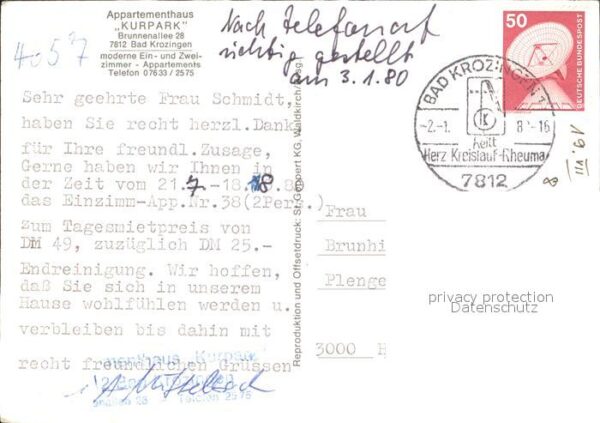 Appartementhaus
„KURPARK"
Brunnenallee 28
7812 Bad Krozingen
moderne Ein- und Zwei-
zimmer - Appartements
Telefon 07633 / 2575
Nach Telefonanruf
richtig gestellt
am 3.1.80
50
DEUTSCHE BUNDESPOST
BAD KROZINGEN
-2.-1. 8 -16
heilt
Herz Kreislauf-Rheuma
7812
19. VII
8
Sehr geehrte Frau Schmidt,
haben Sie recht herzl.Dank
für Ihre freundl. Zusage,
Gerne haben wir Ihnen in
der Zeit vom 21.7-18.8.8
das Einzimm-App.Nr.38(2Pers.)
Zum Tagesmietpreis von
DM 49, zuzüglich DM 25.-
Endreinigung. Wir hoffen,
daß Sie sich in unserem
Hause wohlfühlen werden u.
verbleiben bis dahin mit
recht freundlichen Grüssen
menthaus „Kurpark"
28 Telefon 2575
Reproduktion und Offsetdruck: St. Geppert KG, Waldkirch/Brsg.
Frau
Brunhi
Plenge
3000 H
privacy protection
Datenschutz